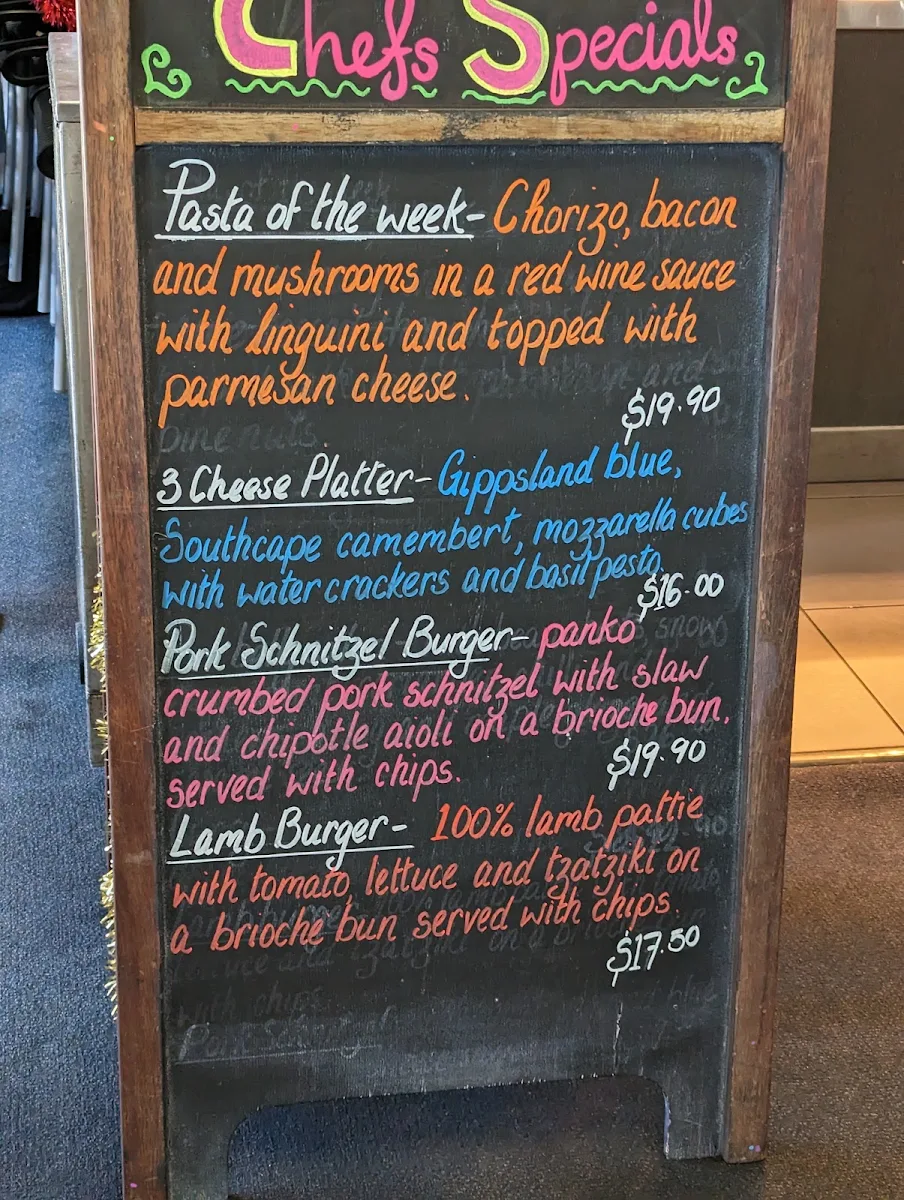 Chefs Specials
Pasta of the week- Chorizo, bacon
and mushrooms in a red wine sauce
with linguini and topped with
parmesan cheese.
$19.90
pine nuts.
3 Cheese Platter- Gippsland blue,
Southcape camembert, mozzarella cubes
with water crackers and basil pesto.
$16.00
Pork Schnitzel Burger- panko
crumbed pork schnitzel with slaw
and chipotle aioli on a brioche bun,
served with chips.
$19.90
Lamb Burger- 100% lamb pattie
with tomato, lettuce and tzatziki on
a brioche bun served with chips.
$17.50
with chips
Pork Schnitzel